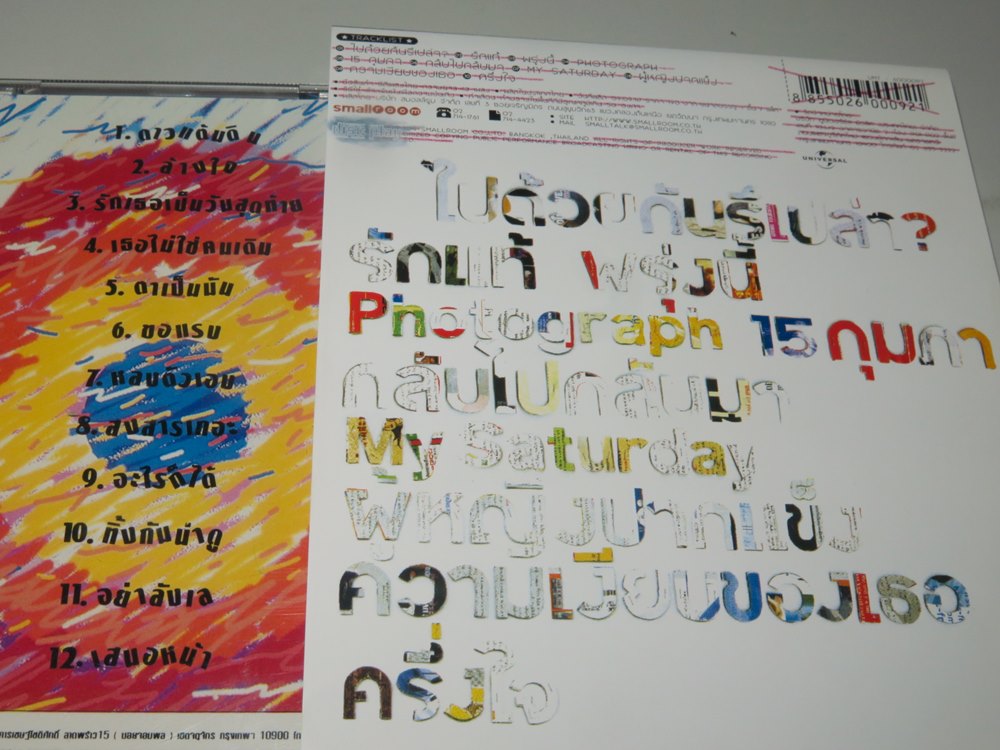 1. ดาวแต้มดิน
2. ล้างใจ
3. รักเธอเป็นวันสุดท้าย
4. เธอไม่ใช่คนเดิม
5. ตาเป็นมัน
6. ขอแรม
7. หลบตัวเอง
8. สงสารเถอะ
9. อะไรก็ได้
10. ทิ้งกันน่าดู
11. อย่าลังเล
12. เสนอหน้า
ลาดพร้าว15 ( จอมพล ) เขตจตุจักร กรุงเทพฯ 10900
★ TRACKLIST ★
ไปด้วยกันรึเปล่า? รักแท้ พรุ่งนี้ PHOTOGRAPH
15 กุมภา กลับไปกลับมา MY SATURDAY ผู้หญิงปากแข็ง
ความเงียบของเธอ ครึ่งใจ
smallroom 02 714-1761 02 714-4423 : SITE HTTP://WWW.SMALLROOM.CO.TH
: MAIL SMALLTALK@SMALLROOM.CO.TH
8 855026 000921
UNIVERSAL
ไปด้วยกันรึเปล่า?
รักแท้ พรุ่งนี้
Photograph 15 กุมภา
กลับไปกลับมา
My Saturday
ผู้หญิงปากแข็ง
ความเงียบของเธอ
ครึ่งใจ